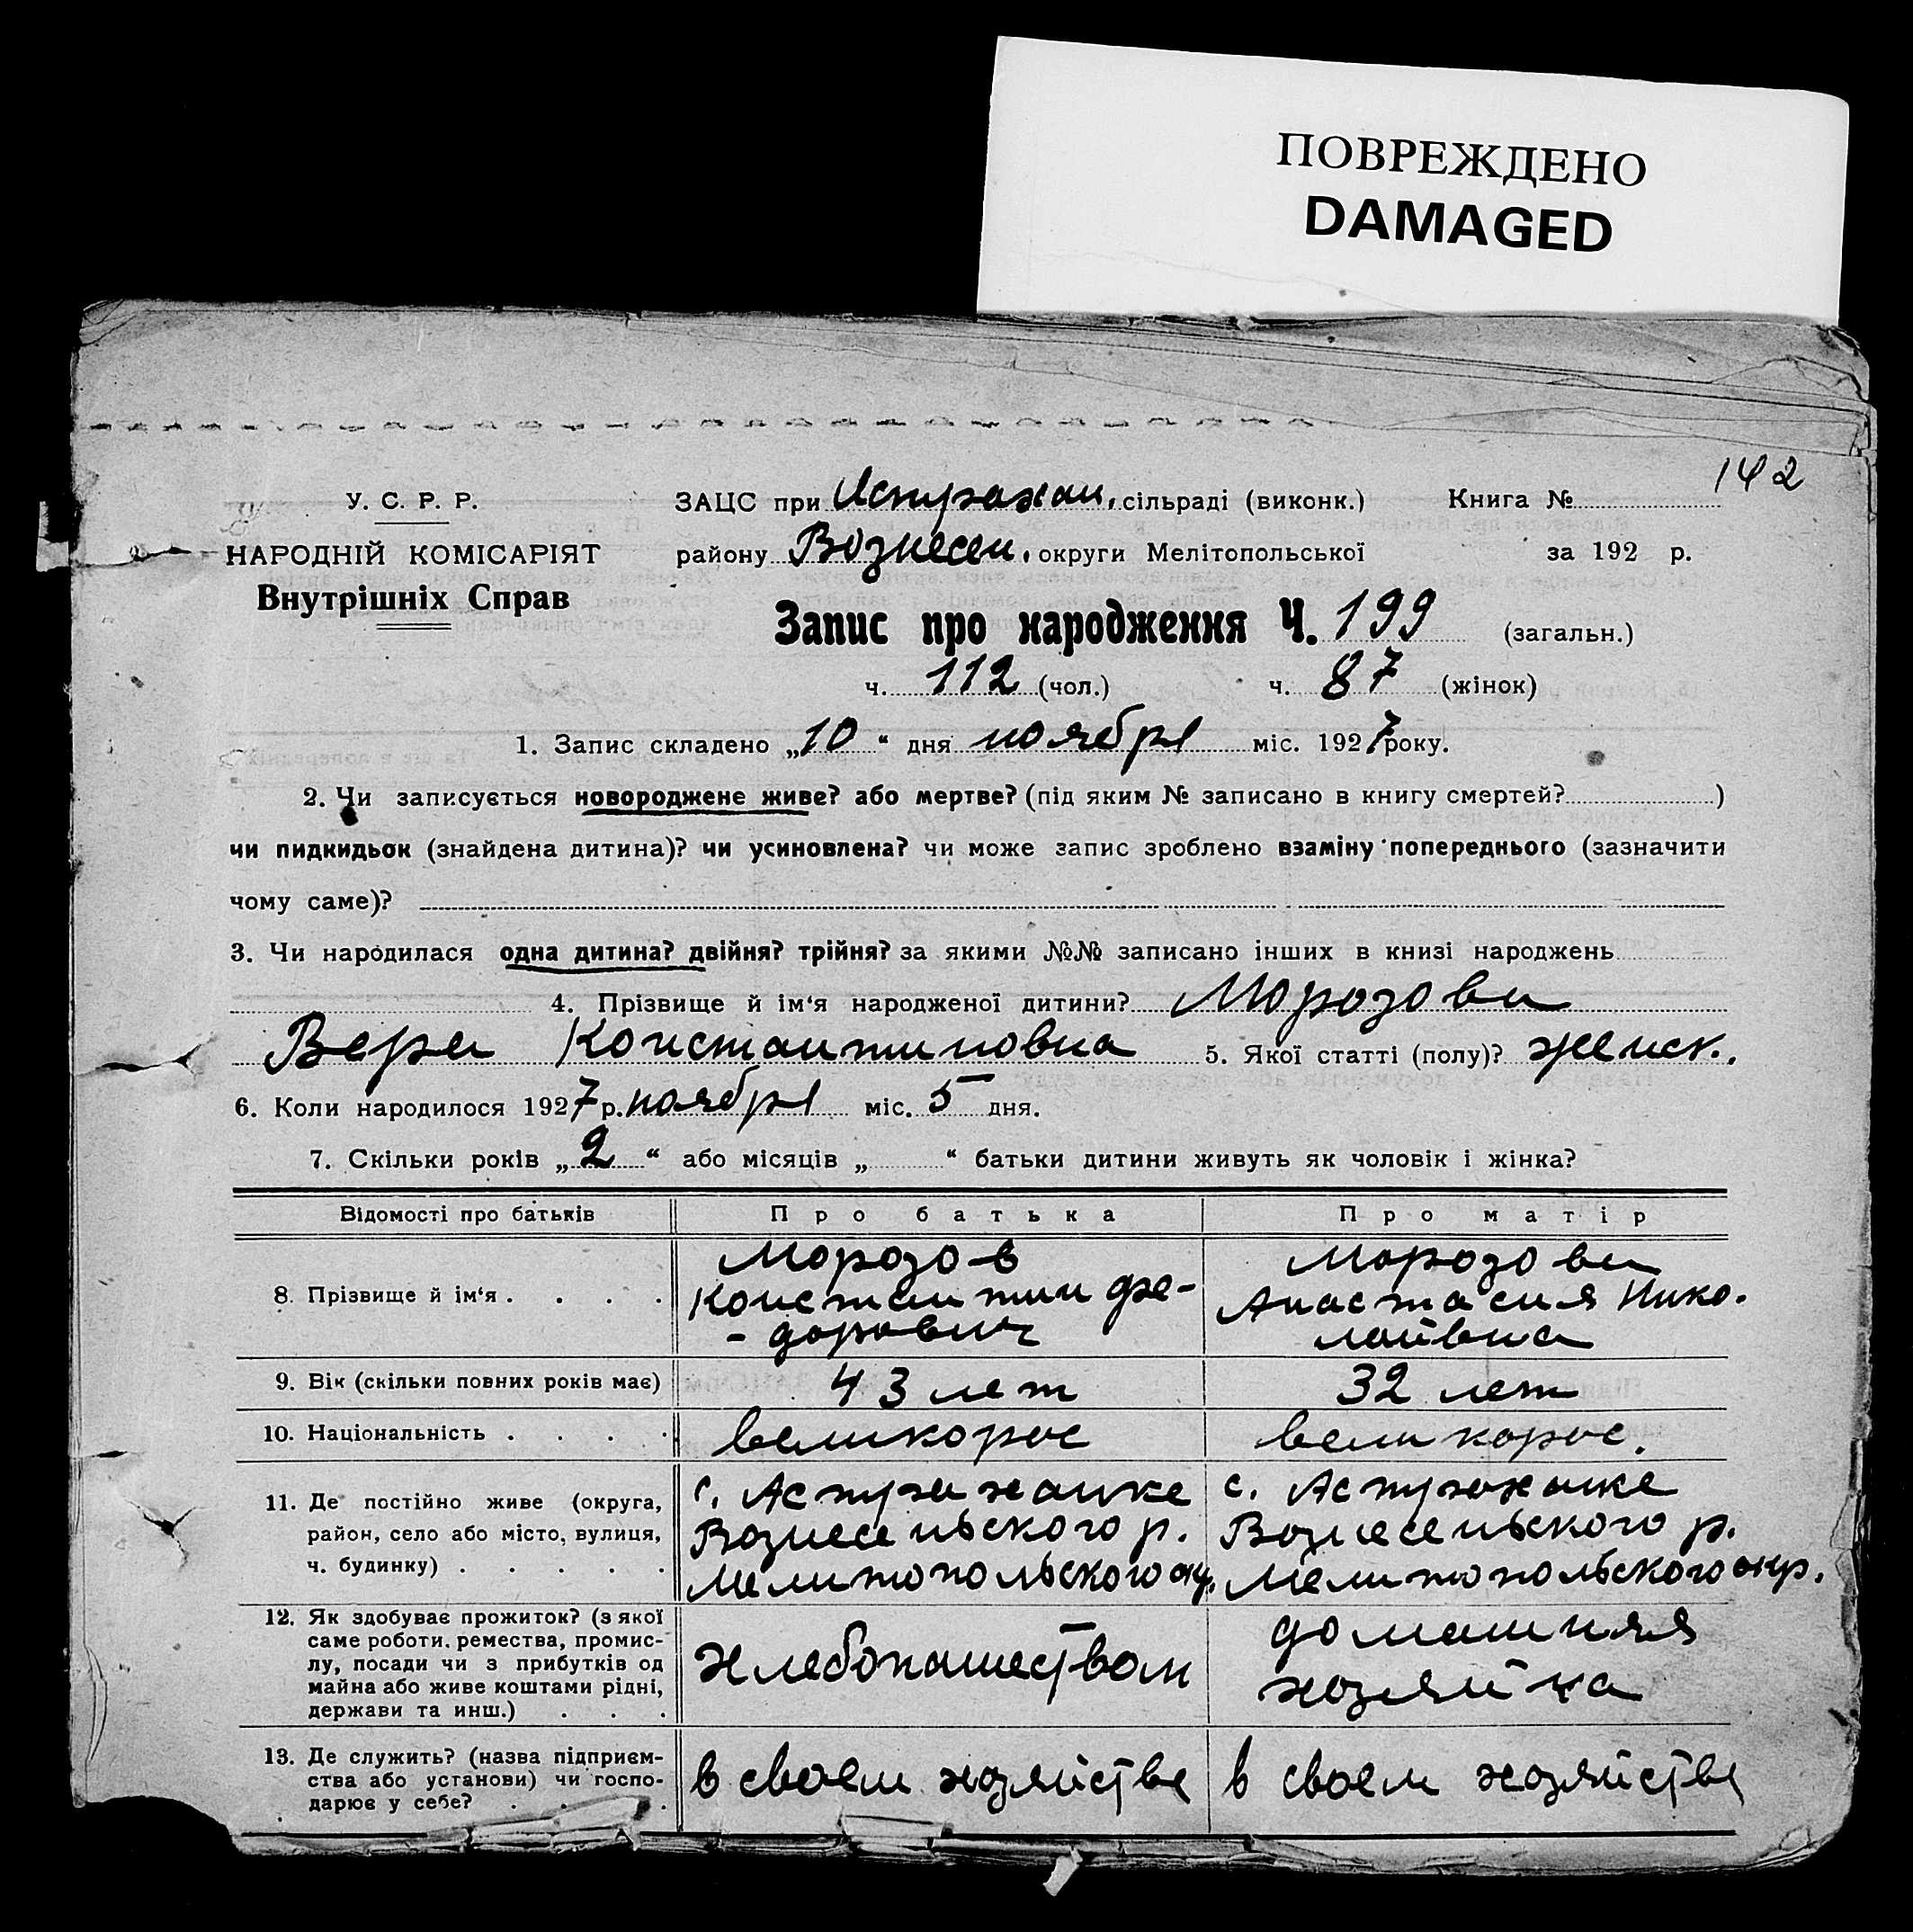 ПОВРЕЖДЕНО
DAMAGED
142
У. С. Р. Р.
НАРОДНІЙ КОМІСАРІЯТ
Внутрішніх Справ
ЗАЦС при Астрахан. сільраді (виконк.) Книга №
району Вознесен. округи Мелітопольської за 192 р.
Запис про народження Ч. 199 (загальн.)
ч. 112 (чол.) ч. 87 (жінок)
1. Запис складено „10“ дня ноября міс. 1927 року.
2. Чи записується новороджене живе? або мертве? (під яким № записано в книгу смертей? )
чи пидкидьок (знайдена дитина)? чи усиновлена? чи може запис зроблено взаміну попереднього (зазначити
чому саме)?
3. Чи народилася одна дитина? двійня? трійня? за якими №№ записано інших в книзі народжень
4. Прізвище й ім‘я народженої дитини? Морозова
Вера Константиновна 5. Якої статті (полу)? женск.
6. Коли народилося 1927 р. ноября міс. 5 дня.
7. Скільки років „2“ або місяців „ “ батьки дитини живуть як чоловік і жінка?
Відомості про батьків Про батька Про матір
8. Прізвище й ім‘я . . . .
Морозов
Константин Фе-
-дорович
Морозова
Анастасия Нико-
лайвна
9. Вік (скільки повних років має) 43 лет 32 лет
10. Національність . . . . великорос великорос.
11. Де постійно живе (округа,
район, село або місто, вулиця,
ч. будинку) . . . . .
с. Астраханке
Вознесенського р.
Мелитопольского ок.
с. Астраханке
Вознесенського р.
Мелитопольского окр.
12. Як здобуває прожиток? (з якої
саме роботи, ремества, промис-
лу, посади чи з прибутків од
майна або живе коштами рідні,
держави та инш.) . . .
хлебопашеством
домашняя
хозяйка
13. Де служить? (назва підприєм-
ства або установи) чи госпо-
дарює у себе? . . . .
в своем хозяйстве
в своем хозяйстве